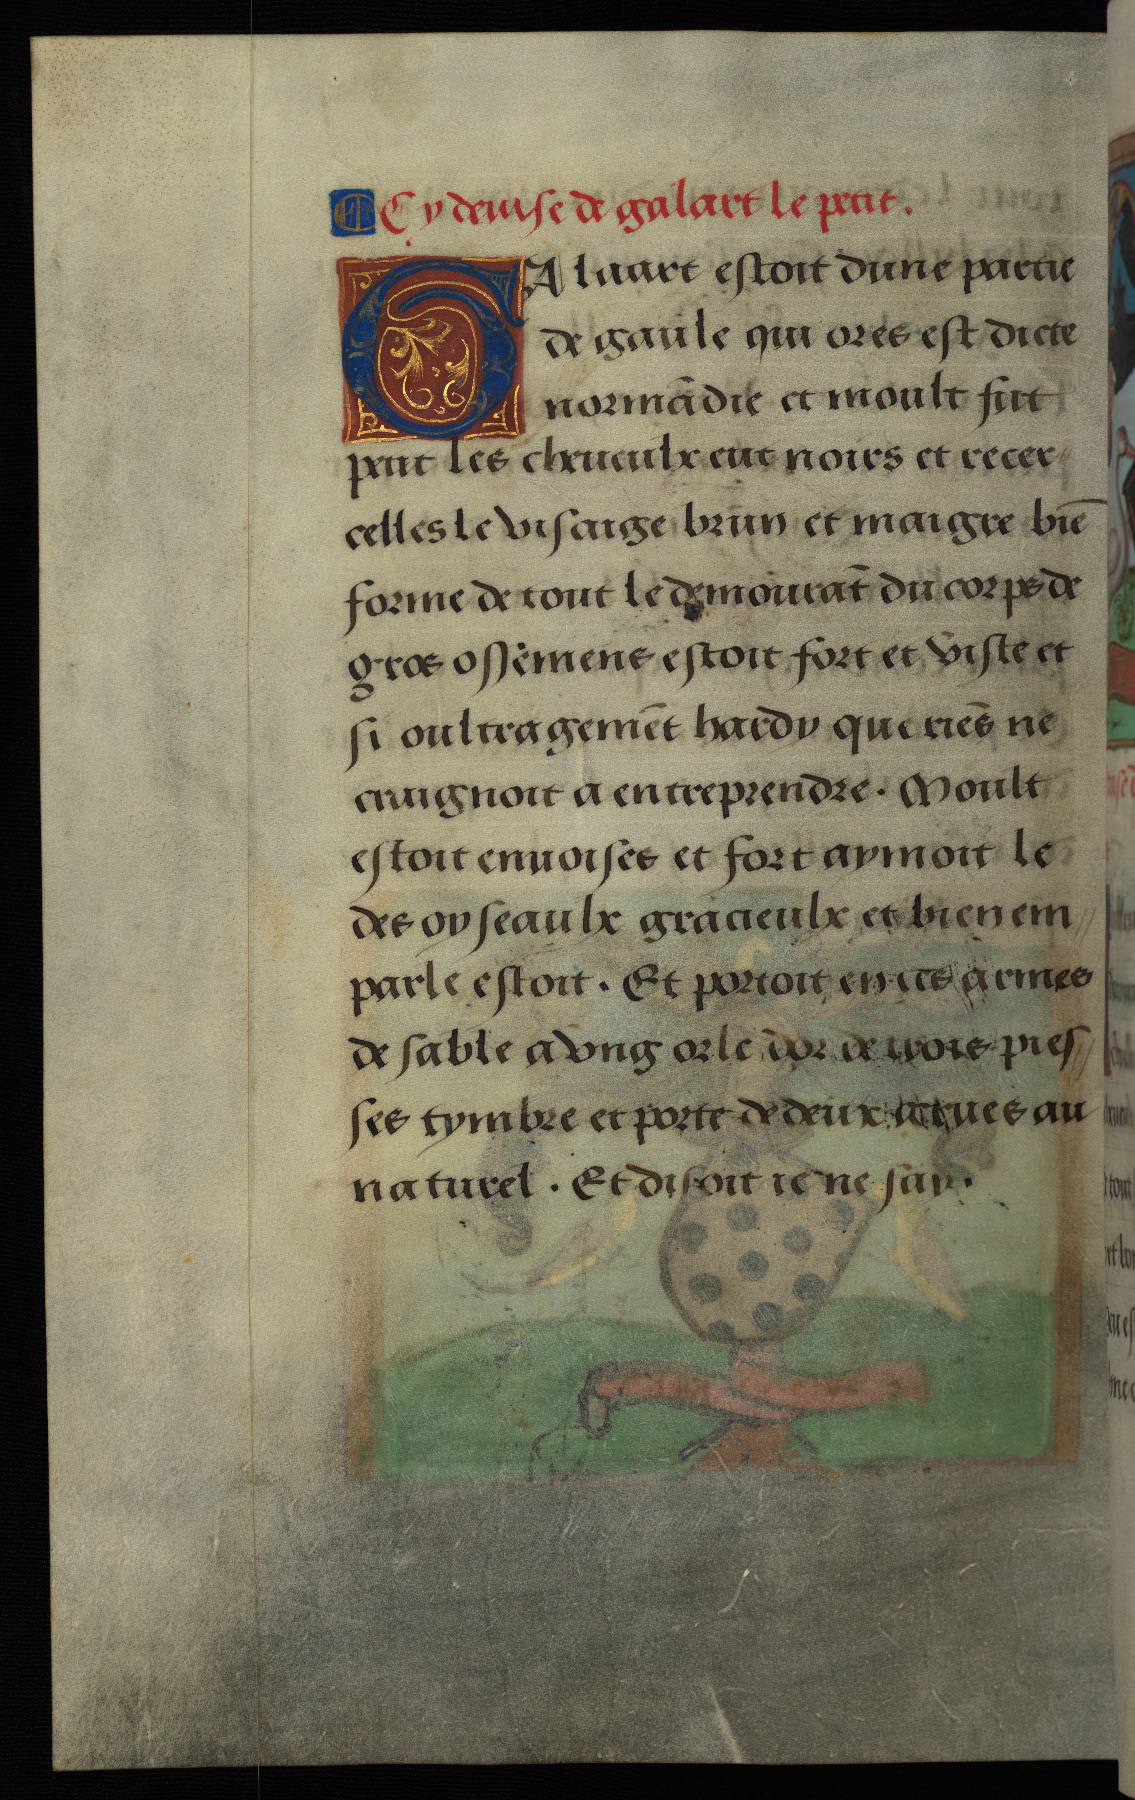 Cy deuise de galart le petit.
GAlaart estoit dune partie
de gaule qui ores est dicte
normādie et moult fut
petit les cheueulx eut noirs et recer
celles le visaige brun et maigre biē
forme de tout le demourāt du corps de
gros ossemens estoit fort et viste et
si oultragemēt hardy que riēs ne
craignoit a entreprendre. Moult
estoit enuoises et fort aymoit le
des oyseaulx gracieulx et bien em
parle estoit. Et portoit en ses armes
de sable a vng orle dor de trois pies
ses tymbre et porte de deux au
naturel. Et disoit ie ne say.